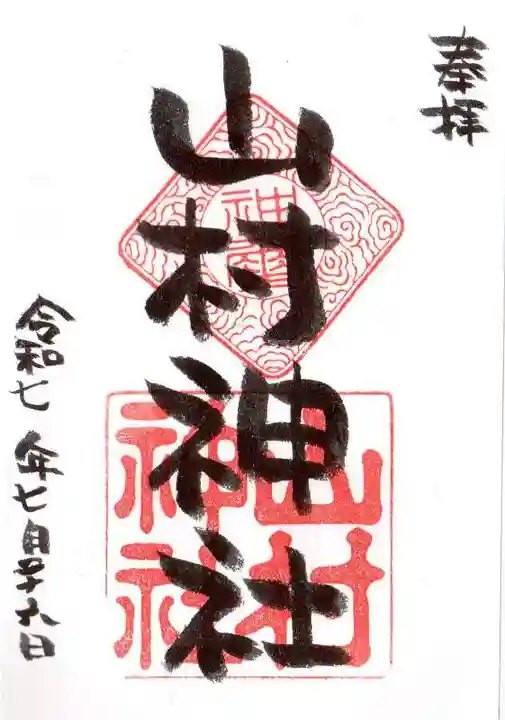 奉拝
山村神社
令和七年七月二十六日
神
山村
神社